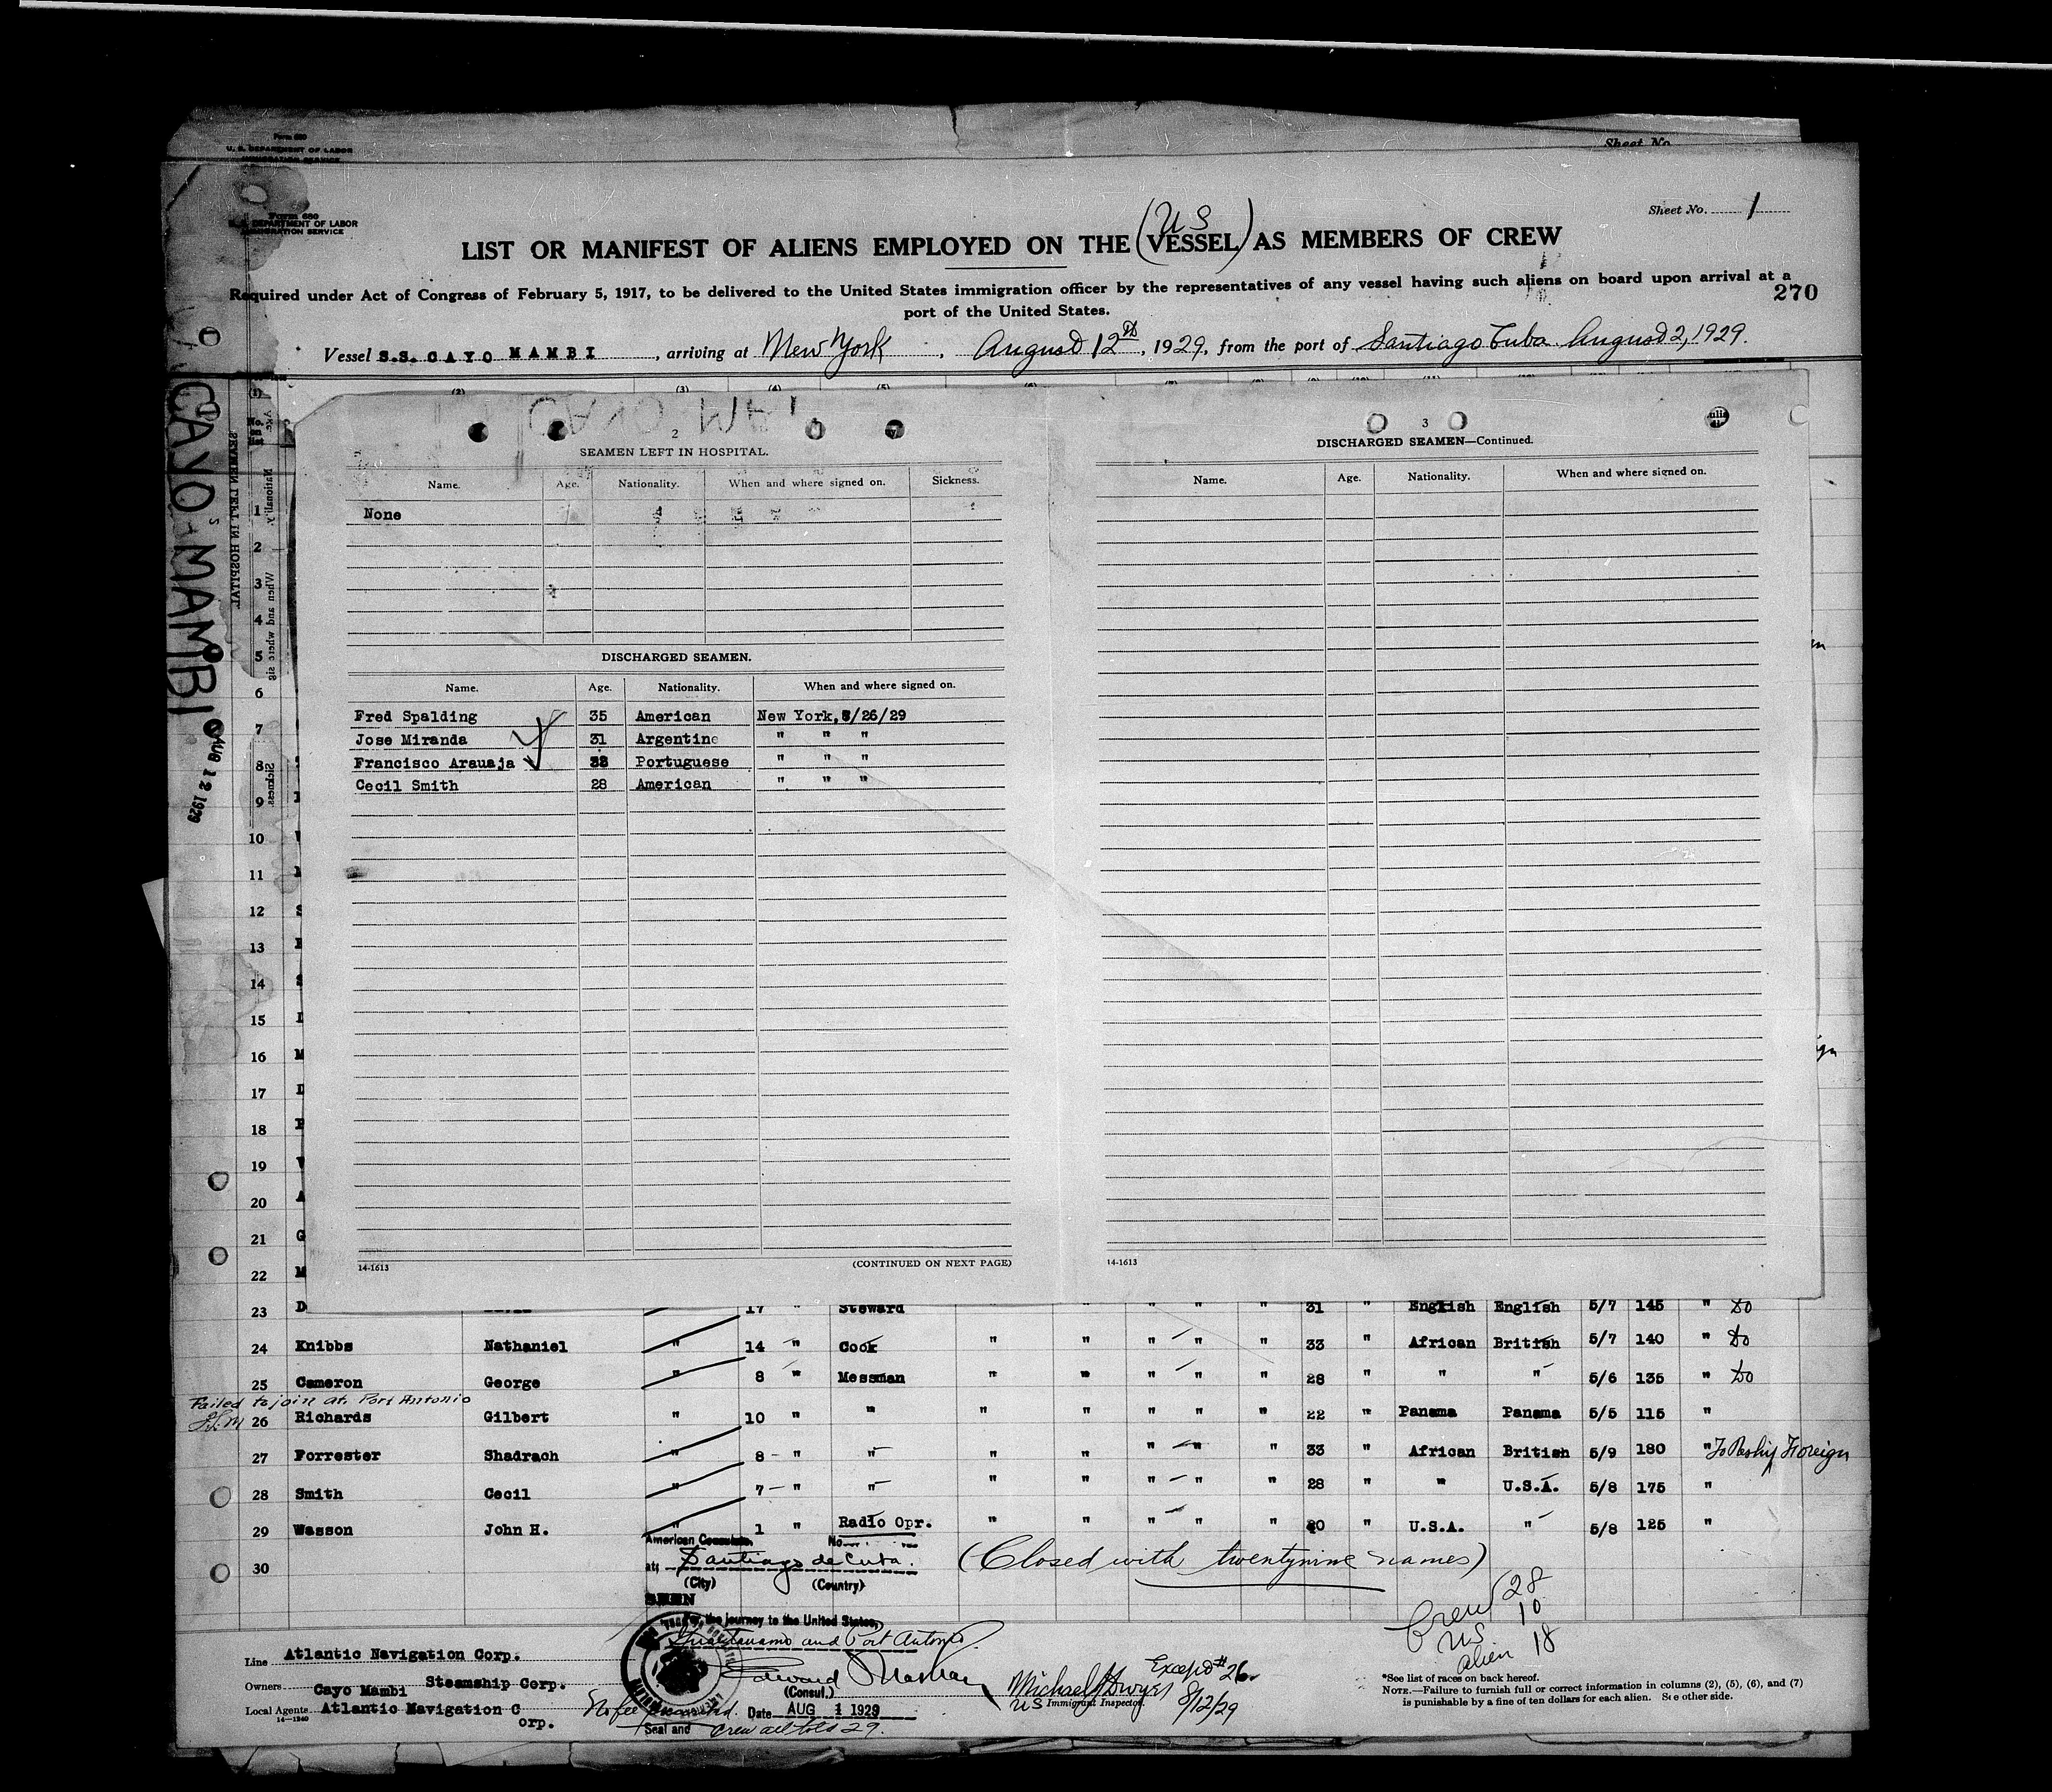 Form 680
U. S. DEPARTMENT OF LABOR
IMMIGRATION SERVICE
Sheet No.
Form 680
U. S. DEPARTMENT OF LABOR
IMMIGRATION SERVICE
Sheet No. 1
(US)
LIST OR MANIFEST OF ALIENS EMPLOYED ON THE (VESSEL) AS MEMBERS OF CREW
Required under Act of Congress of February 5, 1917, to be delivered to the United States immigration officer by the representatives of any vessel having such aliens on board upon arrival at a
port of the United States.
270
Vessel S.S. CAYO MAMBI, arriving at New York, August 12th, 1929, from the port of Santiago Cuba August 2, 1929.
(1) (2) (3) (4) (5)
No. on list
CAYO MAMBI
AUG 12 1929
SEAMEN LEFT IN HOSPITAL
Nationality.
When and where sig
Sickness.
2
SEAMEN LEFT IN HOSPITAL.
Name. Age. Nationality. When and where signed on. Sickness.
None
DISCHARGED SEAMEN.
Name. Age. Nationality. When and where signed on.
Fred Spalding 35 American New York, 6/26/29
Jose Miranda 31 Argentine " " "
Francisco Arauaja Portuguese " " "
Cecil Smith 28 American " " "
14-1613 (CONTINUED ON NEXT PAGE)
3
DISCHARGED SEAMEN—Continued.
Name. Age. Nationality. When and where signed on.
14-1613
1
2
3
4
5
6
7
8
9
10
11
12
13
14
15
16
17
18
19
20
21
22
23 D 17 " Steward " " " " " 31 " English English 5/7 145 " Do
24 Knibbs Nathaniel " 14 " Cook " " " " " 33 " African British 5/7 140 " Do
25 Cameron George " 8 " Messman " " " " " 28 " " " 5/6 135 " Do
Failed to join at Port Antonio
26 Richards Gilbert " 10 " " " " " " " 22 " Panama Panama 5/5 115 "
27 Forrester Shadrach " 8 " " " " " " " 33 " African British 5/9 180 " To Reship Foreign
28 Smith Cecil " 7 " " " " " " " 28 " " U.S.A. 5/8 175 "
29 Wasson John H. " 1 " Radio Opr. " " " " " 20 " U.S.A. " 5/8 125 "
30
American Consulate. No.
at: Santiago de Cuba.
(City) (Country)
SEEN
(Closed with twentynine names)
for the journey to the United States,
Guantanamo and Port Antonio.
Edward
(Consul.)
Date AUG 1 1929
No fee
Seal and
Crew all told 29.
Crew 28
US 10
alien 18
Except #26
Michael J Dwyer 8/12/29
US Immigrant Inspector.
Line Atlantic Navigation Corp.
Owners Cayo Mambi Steamship Corp.
Local Agents Atlantic Navigation Corp.
14—1240
*See list of races on back hereof.
NOTE.—Failure to furnish full or correct information in columns (2), (5), (6), and (7)
is punishable by a fine of ten dollars for each alien. See other side.